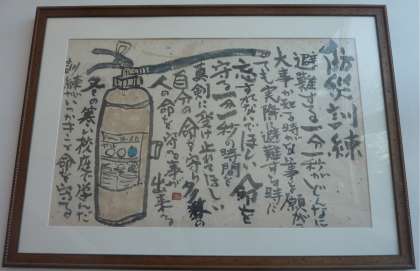 防災訓練
避難する一分一秒がどんなに
大事か知る時が
ても実際避難する時に
忘れないでほしい 命を
守る一分一秒の時間を
真剣に受け止めてほしい
自分の命を守り多数の
人の命を守る事が
出来る
冬の寒い校庭で学んだ
訓練がいつかきっと命を守る